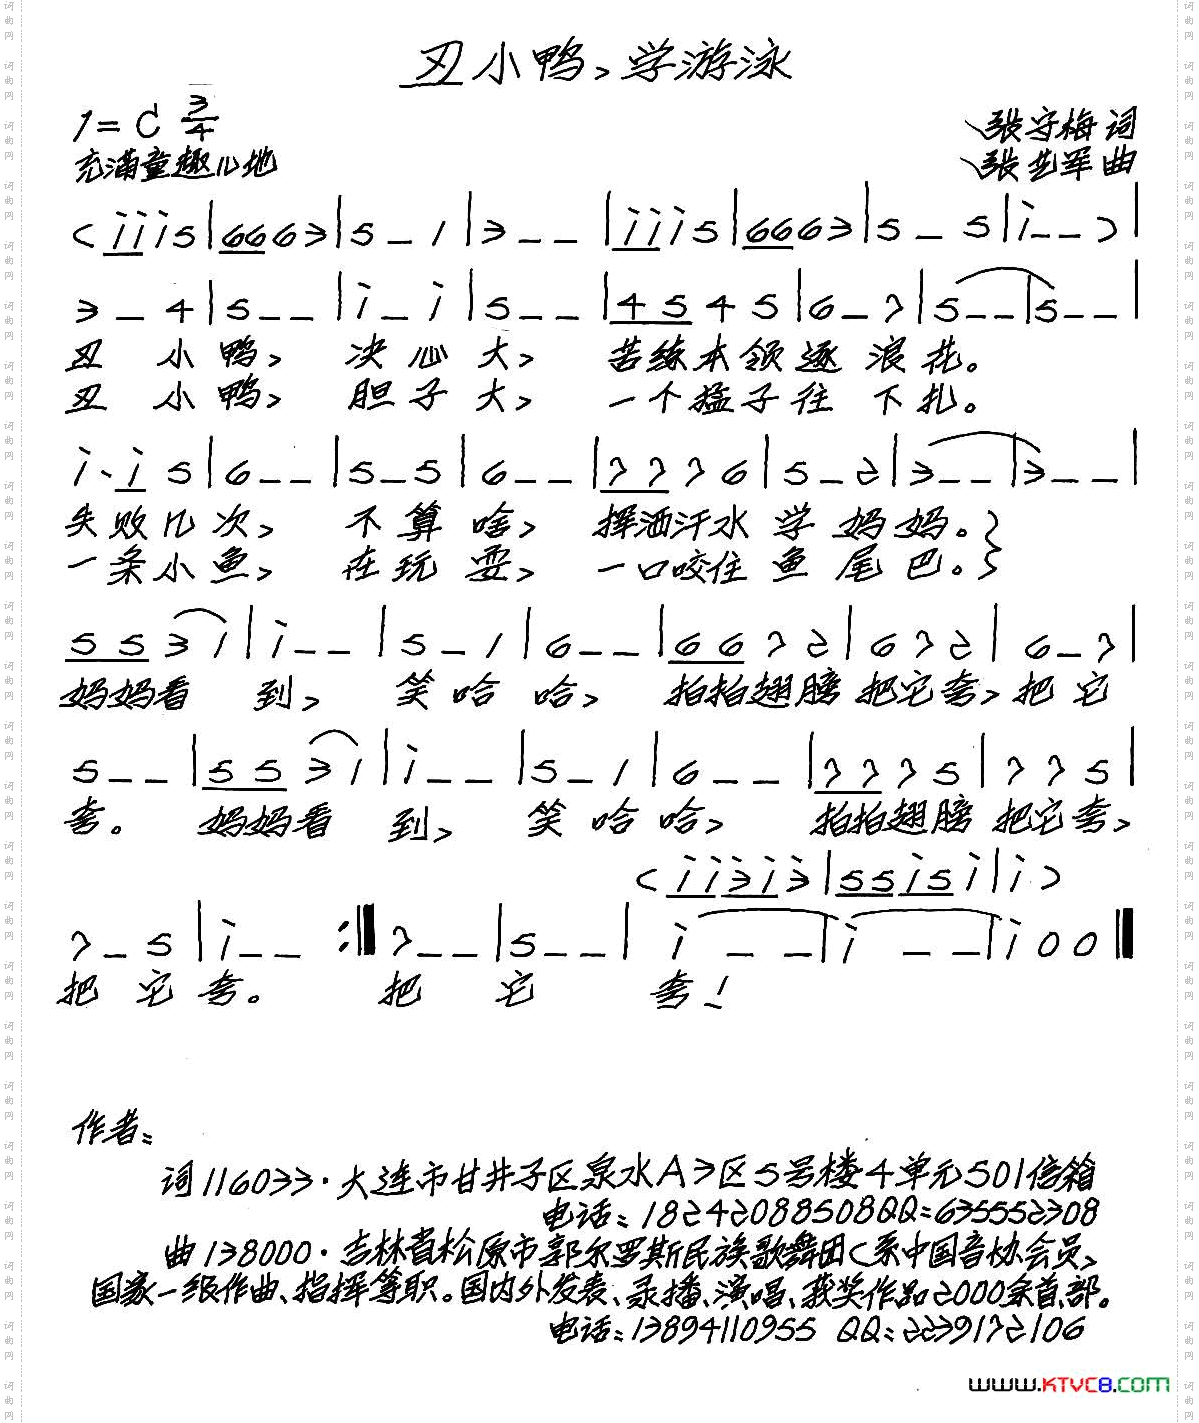 丑小鸭,学游泳
1=C 3/4
张守梅 词
充满童趣儿地
张艺军 曲
( i i i 5 | 6 6 6 3 | 5 – 1 | 3 – – | i i i 5 | 6 6 6 3 | 5 – 5 | i – – ) |
3 – 4 | 5 – – | i – i | 5 – – | 4 5 4 5 | 6 – 7 | 5 – – | 5 – – |
丑 小 鸭, 决 心 大, 苦练本领逐 浪 花。
丑 小 鸭, 胆 子 大, 一个猛子往 下 扎。
i · i 5 | 6 – – | 5 – 5 | 6 – – | 7 7 7 6 | 5 – 2 | 3 – – | 3 – – |
失败几次, 不 算 啥, 挥洒汗水 学 妈 妈。}
一条小鱼, 在 玩 耍, 一口咬住 鱼 尾 巴。}
5 5 3 1 | i – – | 5 – 1 | 6 – – | 6 6 7 2 | 6 7 2 | 6 – 7 |
妈妈看 到, 笑 哈 哈, 拍拍翅膀 把它夸, 把 它
5 – – | 5 5 3 1 | i – – | 5 – 1 | 6 – – | 7 7 7 5 | 7 7 5 |
夸。 妈妈看 到, 笑 哈 哈, 拍拍翅膀 把它夸,
( i i 3 i 3 | 5 5 i 5 i | i )
7 – 5 | i – – :‖ 7 – – | 5 – – | i – – | i – – | i 0 0 ‖
把 它 夸。 把 它 夸!
作者:
词116033·大连市甘井子区泉水A3区5号楼4单元501信箱
电话:18242088508QQ:635552308
曲138000·吉林省松原市郭尔罗斯民族歌舞团(系中国音协会员,
国家一级作曲、指挥等职。国内外发表、录播、演唱、获奖作品2000余首、部。
电话:13894110955 QQ:2239172106
www.KTVC8.com